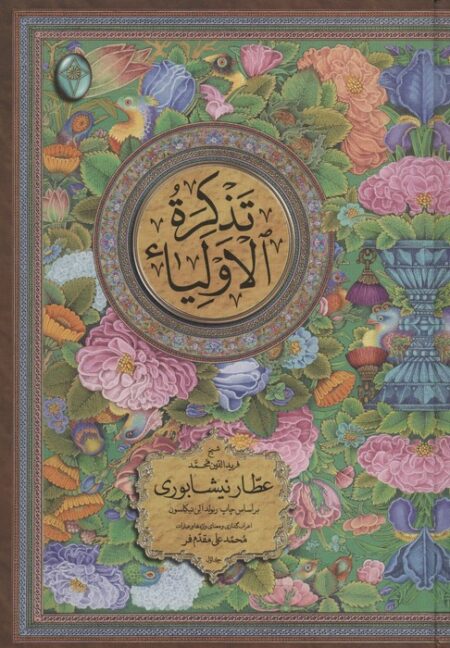 تذکرة
الاولیاء
شیخ
فریدالدین محمد
عطار نیشابوری
براساس چاپ رینولد آلن نیکلسون
اعراب‌گذاری و معنای واژه‌ها و عبارات
محمد علی مقدم فر
جلد اول